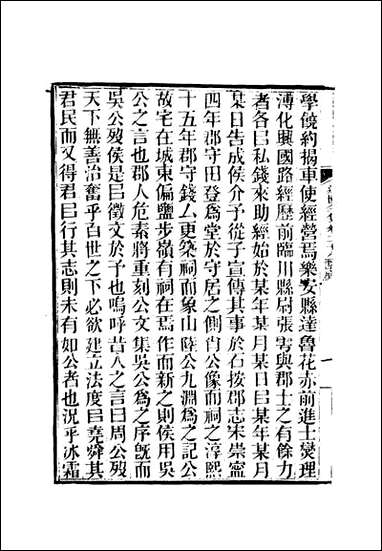 學儀約揭車使經營焉樂安縣達魯花赤前進士燮理
溥化興國路經歷前臨川縣尉張雩與郡士之有餘力
者各㠯私錢來助經始於某年某月某日㠯某年某月
某日告成侯介予從子宣傳其事於石按郡志宋崇寧
四年郡守田登爲堂於守居之側肖公像而祠之淳熙
十五年郡守錢厶更築祠而象山陸公九淵爲之記公
故宅在城東偏鹽步嶺有祠在焉作而新之則侯用吳
公之言也郡人危素將重刻公文集吳公爲之序旣而
吳公歿侯是㠯徵文於予也嗚呼昔人之言曰周公歿
天下無善治奮乎百世之下必欲建立法度㠯堯舜其
君民而又得君㠯行其志則未有如公者也況乎冰霜